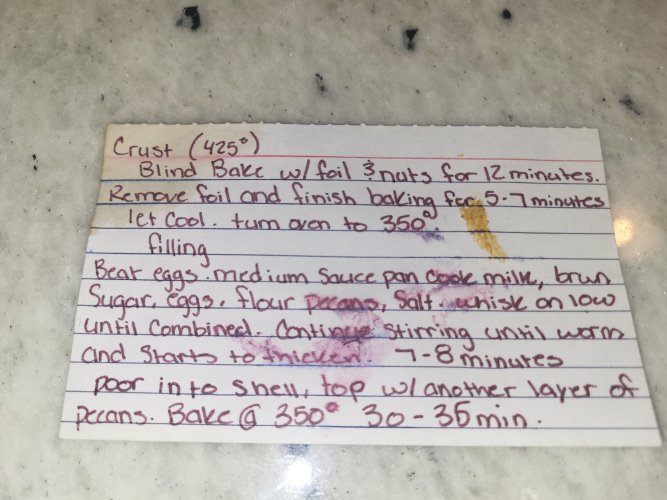 Crust (425°)
Blind Bake w/ foil & nuts for 12 minutes.
Remove foil and finish baking for 5-7 minutes
let cool. turn oven to 350°.
filling
Beat eggs. medium sauce pan cook milk, brwn
Sugar, eggs, flour pecans, Salt. whisk on low
until combined. Continue stirring until warm
and Starts to thicken. 7-8 minutes
poor in to shell, top w/ another layer of
pecans. Bake @ 350° 30-35 min.